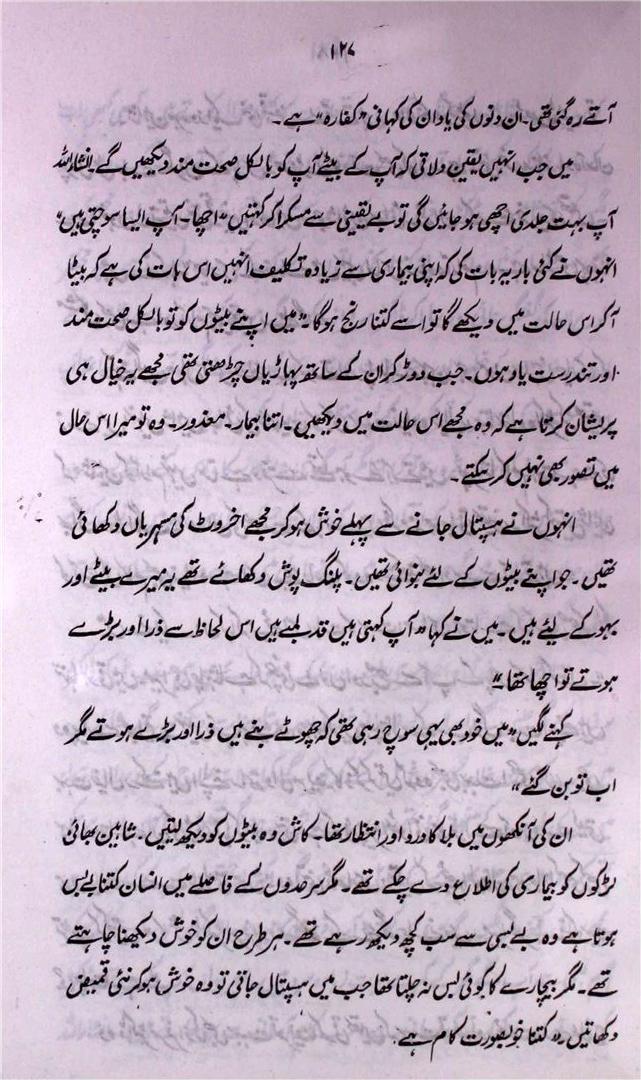 ۱۲۷
آتے رہ گئی تھی۔ ان دنوں کی یاد ان کی کہانی "کفارہ" ہے۔
میں جب انہیں یقین دلاتی کہ آپ کے بیٹے آپ کو بالکل صحت مند دیکھیں گے۔ انشاءاللہ
آپ بہت جلدی اچھی ہو جائیں گی تو بے یقینی سے مسکرا کر کہتیں "اچھا۔ آپ ایسا سوچتی ہیں"
انہوں نے کئی بار یہ بات کی کہ اپنی بیماری سے زیادہ تکلیف انہیں اس بات کی ہے کہ بیٹا
آکر اس حالت میں دیکھے گا تو اسے کتنا رنج ہو گا۔ "میں اپنے بیٹوں کو تو بالکل صحت مند
اور تندرست یاد ہوں۔ جب دوڑ کر ان کے ساتھ پہاڑیاں چڑھتی تھی مجھے یہ خیال ہی
پریشان کرتا ہے کہ وہ مجھے اس حالت میں دیکھیں۔ اتنا بیمار۔ معذور۔ وہ تو میرا اس حال
میں تصور بھی نہیں کر سکتے۔
انہوں نے ہسپتال جانے سے پہلے خوش ہو کر مجھے اخروٹ کی مسہریاں دکھائی
تھیں۔ جو اپنے بیٹوں کے لئے بنوائی تھیں۔ پلنگ پوش دکھائے تھے یہ میرے بیٹے اور
بہو کے لیئے ہیں۔ میں نے کہا "آپ کہتی ہیں قد لمبے ہیں اس لحاظ سے ذرا اور بڑے
ہوتے تو اچھا تھا۔"
کہنے لگیں "میں خود بھی یہی سوچ رہی تھی کہ چھوٹے بنے ہیں ذرا اور بڑے ہوتے مگر
اب تو بن گئے"
ان کی آنکھوں میں بلا کا درد اور انتظار تھا۔ کاش وہ بیٹوں کو دیکھ لیتیں۔ شاہین بھائی
لڑکوں کو بیماری کی اطلاع دے چکے تھے۔ مگر سرحدوں کے فاصلے میں انسان کتنا بے بس
ہوتا ہے وہ بے بسی سے سب کچھ دیکھ رہے تھے۔ ہر طرح ان کو خوش دیکھنا چاہتے
تھے۔ مگر بیچارے کا کوئی بس نہ چلتا تھا جب میں ہسپتال جاتی تو وہ خوش ہو کر نئی قمیض
دکھاتیں "کتنا خوبصورت کام ہے۔